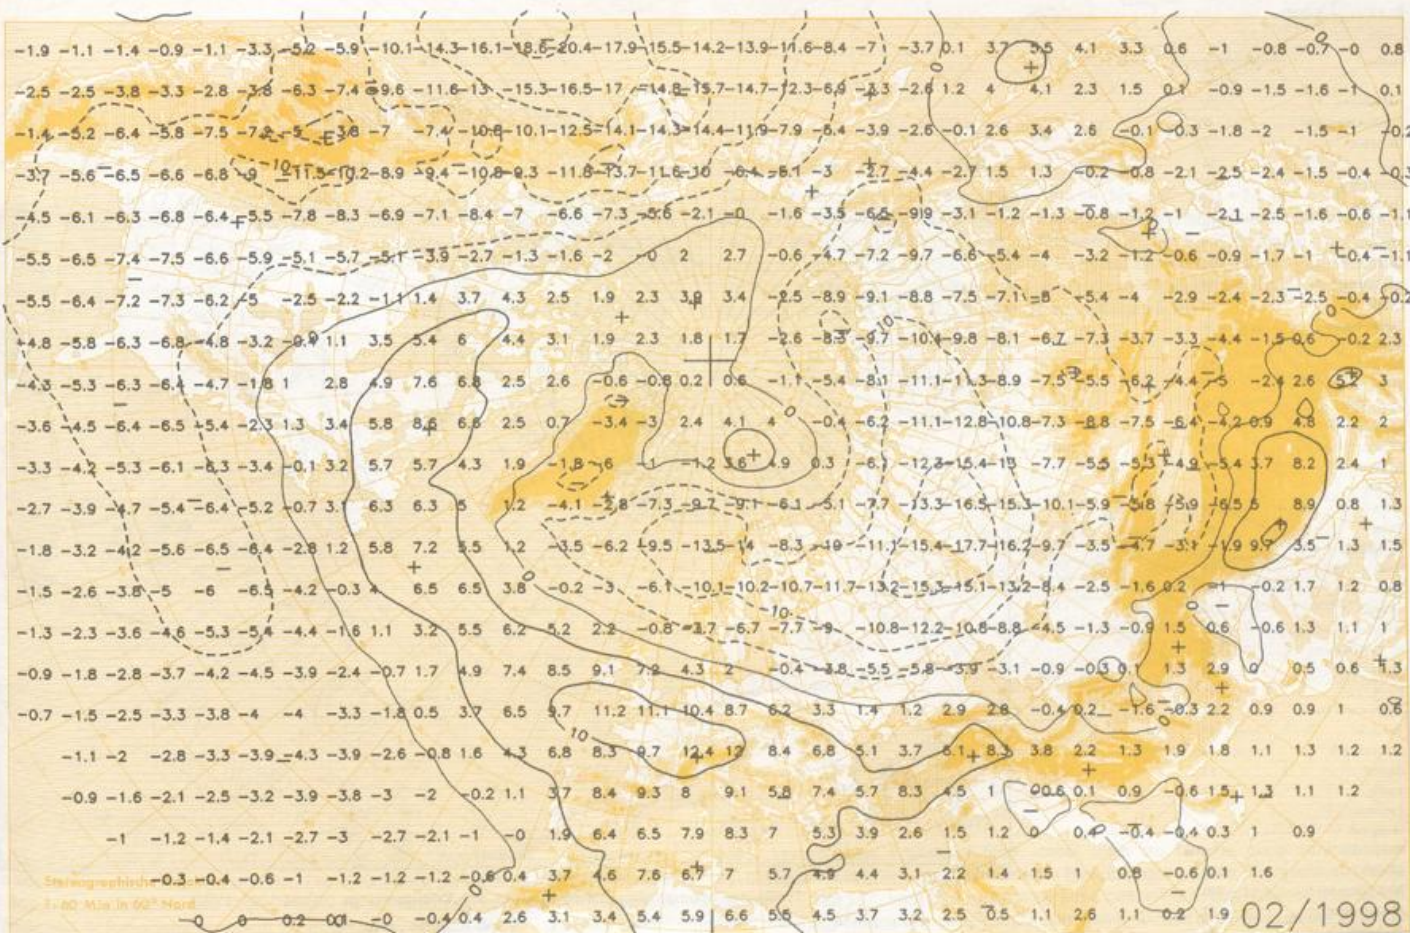 -1.9 -1.1 -1.4 -0.9 -1.1 -3.3 -5.2 -5.9 -10.1 -14.3 -16.1 -18.6 -20.4 -17.9 -15.5 -14.2 -13.9 -11.6 -8.4 -7 -3.7 0.1 3.7 5.5 4.1 3.3 0.6 -1 -0.8 -0.7 -0 0.8
-2.5 -2.5 -3.8 -3.3 -2.8 -3.8 -6.3 -7.4 -9.6 -11.6 -13 -15.3 -16.5 -17 -14.8 -15.7 -14.7 -12.3 -6.9 -3.3 -2.6 1.2 4 4.1 2.3 1.5 0.1 -0.9 -1.5 -1.6 -1 0.1
-1.4 -5.2 -6.4 -5.8 -7.5 -7.2 -5 -3.8 -7 -7.4 -10.8 -10.1 -12.5 -14.1 -14.3 -14.4 -11.9 -7.9 -6.4 -3.9 -2.6 -0.1 2.6 3.4 2.6 -0.1 -0.3 -1.8 -2 -1.5 -1 -0.2
-3.7 -5.6 -6.5 -6.6 -6.8 -9 -10 -11.5 -10.2 -8.9 -9.4 -10.8 -9.3 -11.8 -13.7 -11.6 -10 -6.4 -5.1 -3 -2.7 -4.4 -2.7 1.5 1.3 -0.2 -0.8 -2.1 -2.5 -2.4 -1.5 -0.4 -0.3
-4.5 -6.1 -6.3 -6.8 -6.4 -5.5 -7.8 -8.3 -6.9 -7.1 -8.4 -7 -6.6 -7.3 -5.6 -2.1 -0 -1.6 -3.5 -6.5 -9.9 -3.1 -1.2 -1.3 -0.8 -1.2 -1 -2.1 -2.5 -1.6 -0.6 -1.1
-5.5 -6.5 -7.4 -7.5 -6.6 -5.9 -5.1 -5.7 -5.1 -3.9 -2.7 -1.3 -1.6 -2 -0 2 2.7 -0.6 -4.7 -7.2 -9.7 -6.6 -5.4 -4 -3.2 -1.2 -0.6 -0.9 -1.7 -1 -0.4 -1.1
-5.5 -6.4 -7.2 -7.3 -6.2 -5 -2.5 -2.2 -1.1 1.4 3.7 4.3 2.5 1.9 2.3 3.9 3.4 -2.5 -8.9 -9.1 -8.8 -7.5 -7.1 -8 -5.4 -4 -2.9 -2.4 -2.3 -2.5 -0.4 -0.2
-4.8 -5.8 -6.3 -6.8 -4.8 -3.2 -0.4 1.1 3.5 5.4 6 4.4 3.1 1.9 2.3 1.8 1.7 -2.6 -8.3 -9.7 -10.4 -9.8 -8.1 -6.7 -7.3 -3.7 -3.3 -4.4 -1.5 0.6 -0.2 2.3
-4.3 -5.3 -6.3 -6.4 -4.7 -1.8 1 2.8 4.9 7.6 6.8 2.5 2.6 -0.6 -0.8 0.2 0.6 -1.1 -5.4 -8.1 -11.1 -11.3 -8.9 -7.5 -5.5 -6.2 -4.4 -5 -2.4 2.6 5.2 3
-3.6 -4.5 -6.4 -6.5 -5.4 -2.3 1.3 3.4 5.8 8.6 6.8 2.5 0.7 -3.4 -3 2.4 4.1 4 -0.4 -6.2 -11.1 -12.8 -10.8 -7.3 -8.8 -7.5 -6.4 -4.2 0.9 4.8 2.2 2
-3.3 -4.2 -5.3 -6.1 -6.3 -3.4 -0.1 3.2 5.7 5.7 4.3 1.9 -1.8 -6 -1 -1.2 3.6 4.9 0.3 -6.1 -12.3 -15.4 -13 -7.7 -5.5 -5.3 -4.9 -5.4 3.7 8.2 2.4 1
-2.7 -3.9 -4.7 -5.4 -6.4 -5.2 -0.7 3.1 6.3 6.3 5 1.2 -4.1 -2.8 -7.3 -9.7 -9.1 -6.1 -5.1 -7.7 -13.3 -16.5 -15.3 -10.1 -5.9 -5.8 -5.9 -6.5 5 8.9 0.8 1.3
-1.8 -3.2 -4.2 -5.6 -6.5 -6.4 -2.8 1.2 5.8 7.2 5.5 1.2 -3.5 -6.2 -9.5 -13.5 -14 -8.3 -10 -11.1 -15.4 -17.7 -16.2 -9.7 -3.5 -4.7 -3.1 -1.9 9.7 3.5 1.3 1.5
-1.5 -2.6 -3.8 -5 -6 -6.5 -4.2 -0.3 4 6.5 6.5 3.8 -0.2 -3 -6.1 -10.1 -10.2 -10.7 -11.7 -13.2 -15.3 -15.1 -13.2 -8.4 -2.5 -1.6 0.2 -1 -0.2 1.7 1.2 0.8
-1.3 -2.3 -3.6 -4.6 -5.3 -5.4 -4.4 -1.6 1.1 3.2 5.5 6.2 5.2 2.2 -0.8 -3.7 -6.7 -7.7 -9 -10.8 -12.2 -10.8 -8.8 -4.5 -1.3 -0.9 1.5 0.6 -0.6 1.3 1.1 1
-0.9 -1.8 -2.8 -3.7 -4.2 -4.5 -3.9 -2.4 -0.7 1.7 4.9 7.4 8.5 9.1 7.2 4.3 2 -0.4 -3.8 -5.5 -5.8 -3.9 -3.1 -0.9 -0.3 0.1 1.3 2.9 0 0.5 0.6 1.3
-0.7 -1.5 -2.5 -3.3 -3.8 -4 -4 -3.3 -1.8 0.5 3.7 6.5 9.7 11.2 11.1 10.4 8.7 6.2 3.3 1.4 1.2 2.9 2.8 -0.4 0.2 -1.6 -0.3 2.2 0.9 0.9 1 0.6
-1.1 -2 -2.8 -3.3 -3.9 -4.3 -3.9 -2.6 -0.8 1.6 4.3 6.8 8.3 9.7 12.4 12 8.4 6.8 5.1 3.7 6.1 8.3 3.8 2.2 1.3 1.9 1.8 1.1 1.3 1.2 1.2
-0.9 -1.6 -2.1 -2.5 -3.2 -3.9 -3.8 -3 -2 -0.2 1.1 3.7 8.4 9.3 8 9.1 5.8 7.4 5.7 8.3 4.5 1 -0.6 0.1 0.9 -0.6 1.5 1.3 1.1 1.2
-1 -1.2 -1.4 -2.1 -2.7 -3 -2.7 -2.1 -1 -0 1.9 6.4 6.5 7.9 8.3 7 5.3 3.9 2.6 1.5 1.2 0 0.4 -0.4 -0.4 0.3 1 0.9
-0.3 -0.4 -0.6 -1 -1.2 -1.2 -1.2 -0.6 0.4 3.7 4.6 7.6 6.7 7 5.7 4.9 4.4 3.1 2.2 1.4 1.5 1 0.8 -0.6 0.1 1.6
-0 0 0.2 0.1 -0 -0.4 0.4 2.6 3.1 3.4 5.4 5.9 6.6 5.5 4.5 3.7 3.2 2.5 0.5 1.1 2.6 1.1 0.2 1.9
02/1998